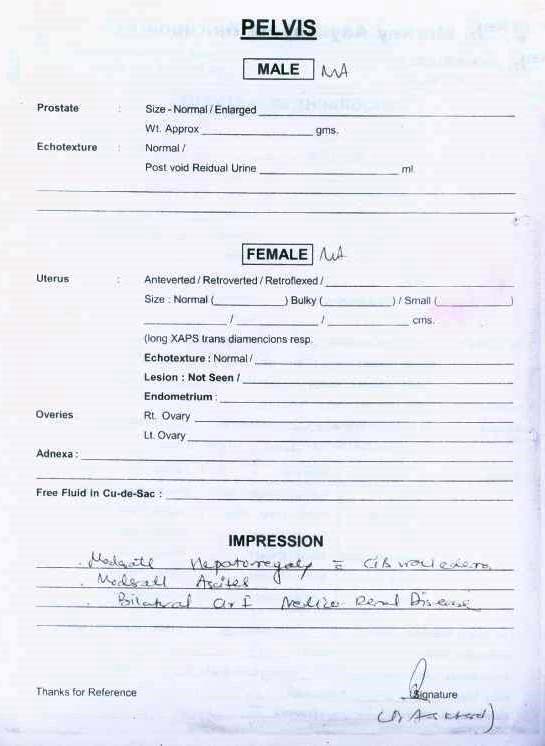 PELVIS
MALE NA
Prostate : Size - Normal / Enlarged
Wt. Approx gms.
Echotexture : Normal /
Post void Reidual Urine ml.
FEMALE NA
Uterus : Anteverted / Retroverted / Retroflexed /
Size : Normal ( ) Bulky ( ) / Small ( )
/ / cms.
(long XAPS trans diamencions resp.
Echotexture : Normal /
Lesion : Not Seen /
Endometrium :
Overies Rt. Ovary
Lt. Ovary
Adnexa :
Free Fluid in Cu-de-Sac :
IMPRESSION
Hepatomegaly GB wall edema
Ascites
Bilateral Medico Renal Disease
Thanks for Reference
Signature